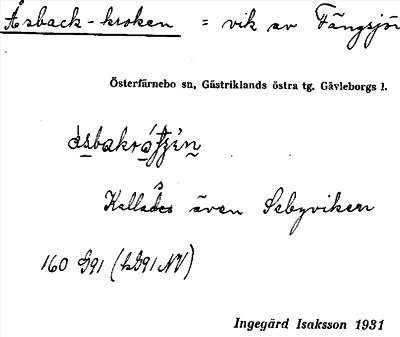 Åsback-kroken = vik av Fängsjön
Österfärnebo sn, Gästriklands östra tg. Gävleborgs l.
Kallades även Sebyviken
160 G91 (kG91 NV)
Ingegärd Isaksson 1931